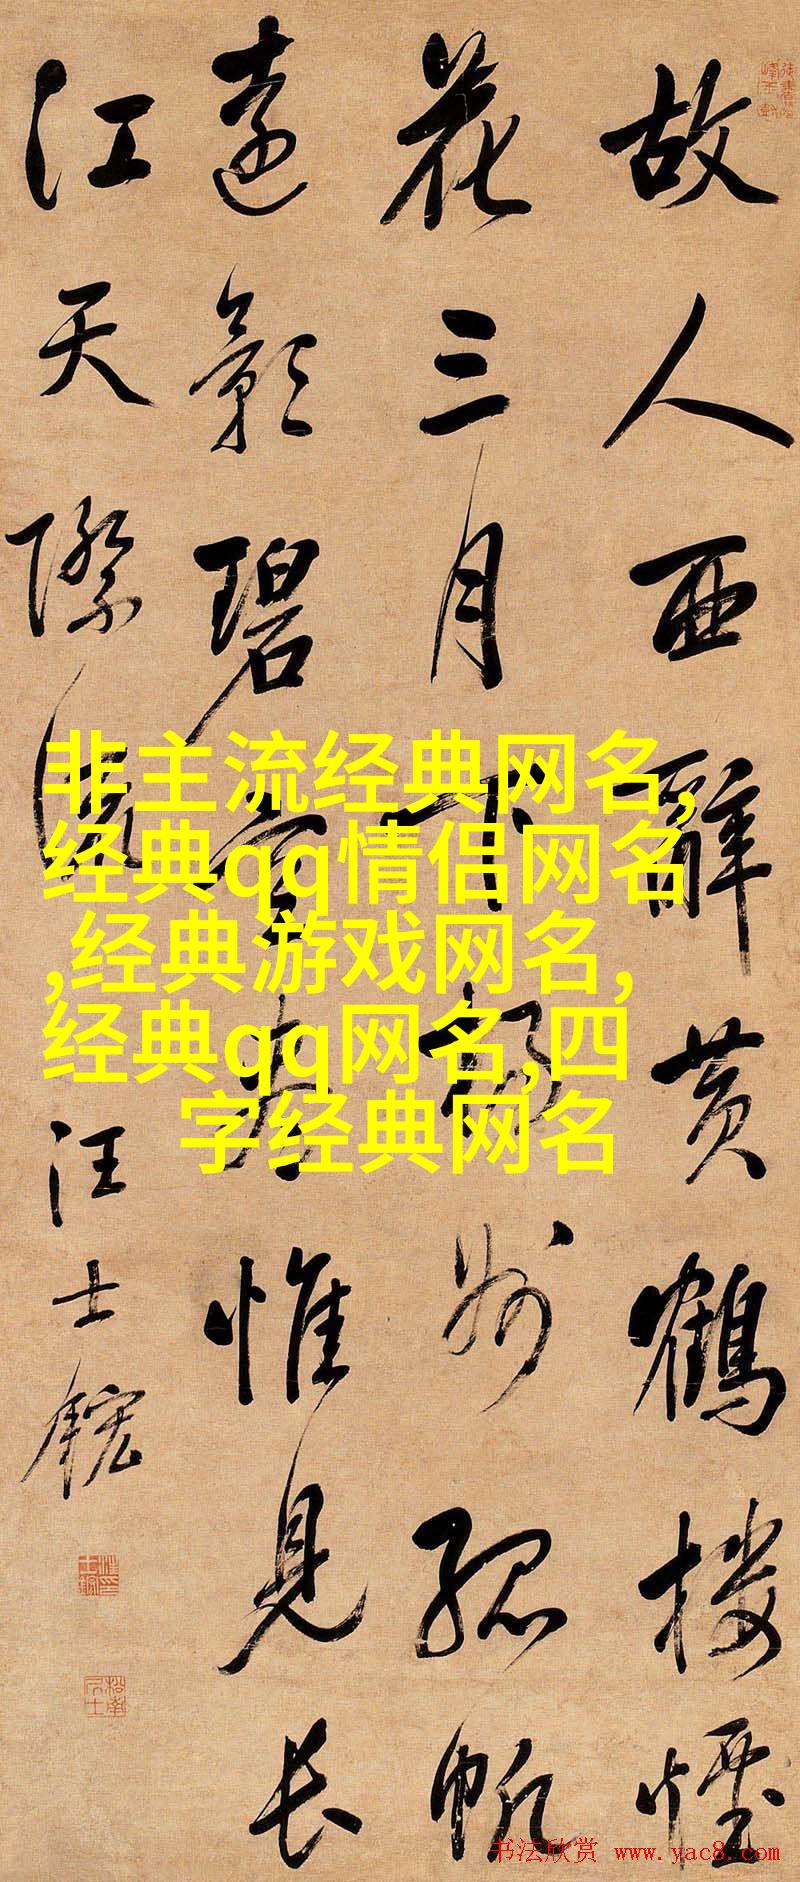 故人西辭黃鶴樓煙
花三月下揚州孤帆
遠影碧空盡惟見長
江天際流
汪士鋐
非主流经典网名,
经典qq情侣网名
,经典游戏网名,
经典qq网名,四
字经典网名
书法欣赏 www.yac8.com